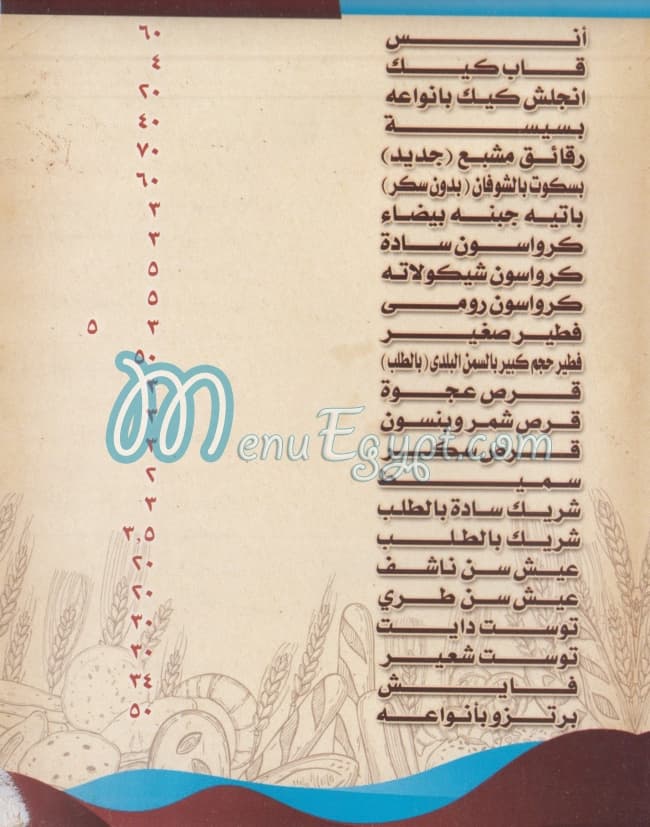 أنس ٦٠
قاب كيك ٤
انجلش كيك بانواعه ٢٠
بسيسة ٤٠
رقائق مشبع (جديد) ٧٠
بسكوت بالشوفان (بدون سكر) ٦٠
باتيه جبنه بيضاء ٣
كرواسون سادة ٣
كرواسون شيكولاته ٥
كرواسون رومى ٥
فطير صغير ٣ ٥
فطير حجم كبير بالسمن البلدى (بالطلب) ٥٠
قرص عجوة ٣
قرص شمر وينسون ٣
قرص سكر ٣
سميط ٢
شريك سادة بالطلب ٣
شريك بالطلب ٣,٥
عيش سن ناشف ٢٠
عيش سن طري ٢٠
توست دايت ٣٠
توست شعير ٣٠
فايش ٣٤
برتزو بأنواعه ٥٠
MenuEgypt.com